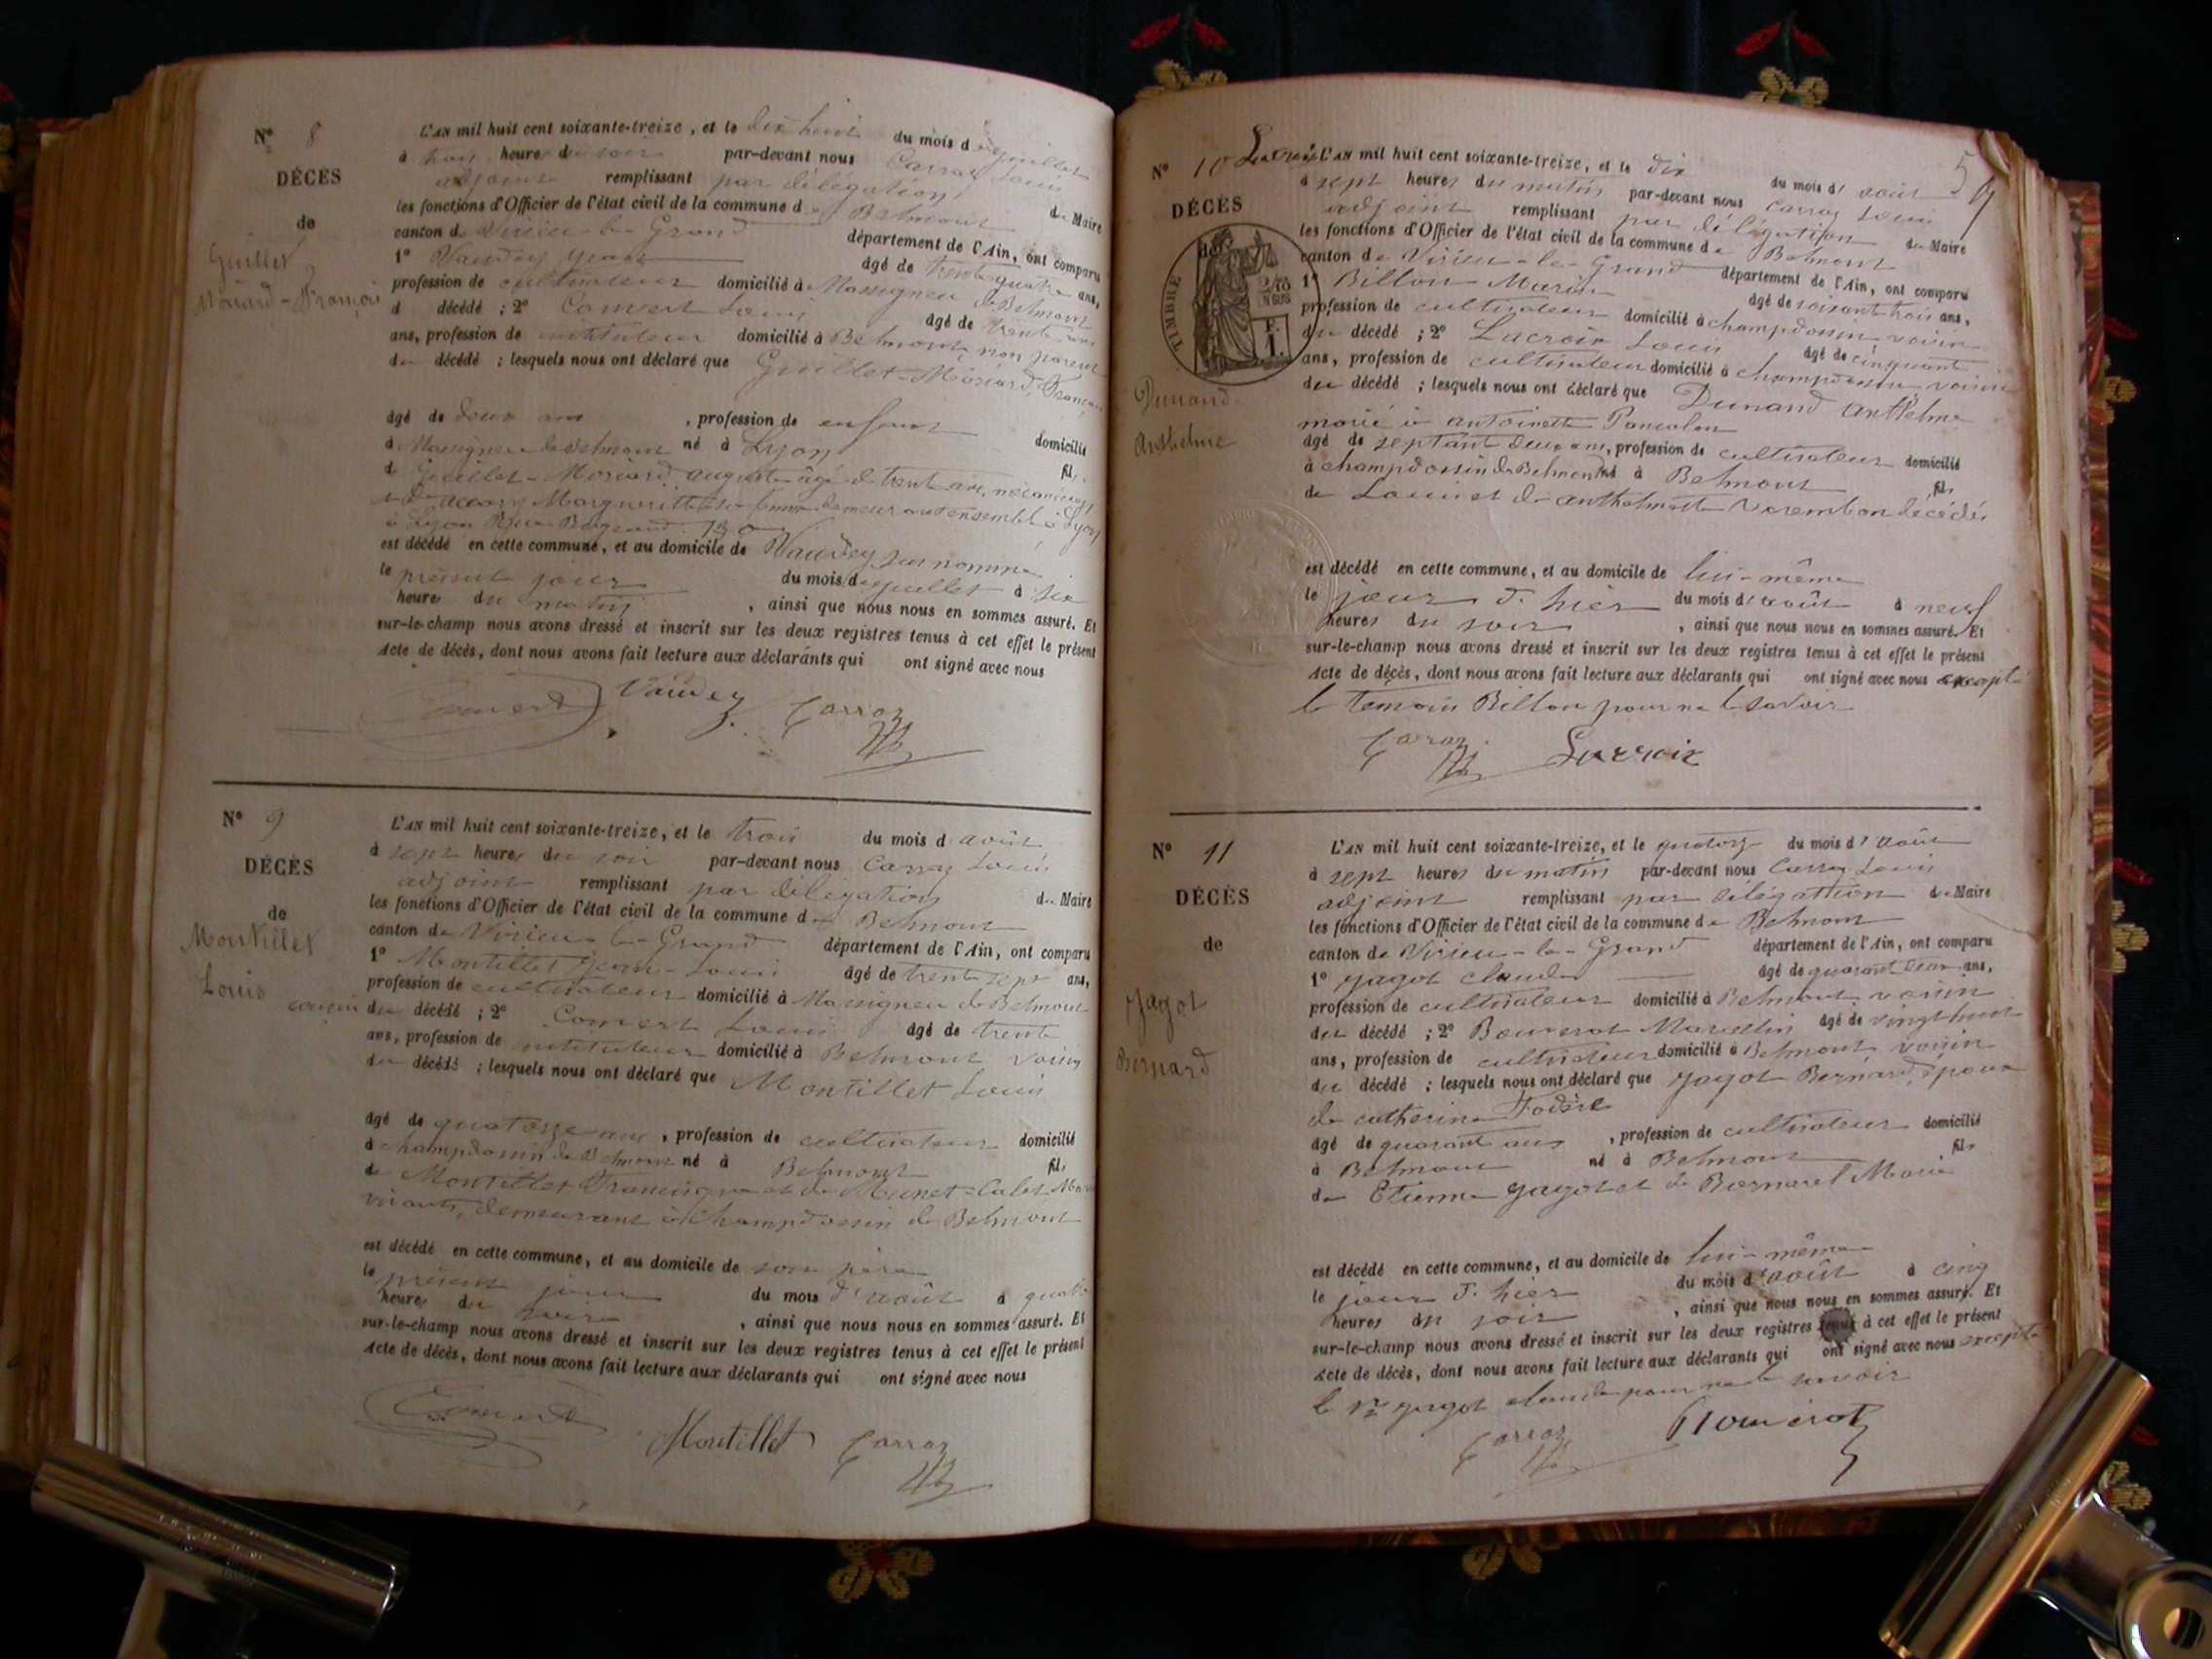 N° 8
DÉCÈS
de
Guillet
Moriard-François
L'AN mil huit cent soixante-treize, et le dix huit du mois de juillet
à trois heures du soir par-devant nous Carraz Louis
adjoint remplissant par délégation du Maire
les fonctions d'Officier de l'état civil de la commune de Belmont
canton de Virieu-le-Grand département de l'Ain, ont comparu
1° Vaudey âgé de trente quatre ans,
profession de cultivateur domicilié à Massigneu de Belmont
d décédé ; 2° Convert Louis âgé de trente
ans, profession de instituteur domicilié à Belmont, non parent
du décédé ; lesquels nous ont déclaré que Guillet-Moriard, François
âgé de deux ans, profession de enfant domicilié
à Massigneu de Belmont né à Lyon fils
de Guillet-Moriard, auguste âgé de trente ans, mécanicien
et de Margueritte sa femme demeurant ensemble à Lyon
à Lyon Rue
est décédé en cette commune, et au domicile de Vaudey, sus nommé
le présent jour du mois de juillet à six
heures du matin, ainsi que nous nous en sommes assuré. Et
sur-le-champ nous avons dressé et inscrit sur les deux registres tenus à cet effet le présent
Acte de décès, dont nous avons fait lecture aux déclarants qui ont signé avec nous
Convert Vaudey Carraz
N° 9
DÉCÈS
de
Montillet
Louis
L'AN mil huit cent soixante-treize, et le trois du mois d'août
à sept heures du soir par-devant nous Carraz Louis
adjoint remplissant par délégation du Maire
les fonctions d'Officier de l'état civil de la commune de Belmont
canton de Virieu-le-Grand département de l'Ain, ont comparu
1° Montillet Jean-Louis âgé de trente sept ans,
profession de cultivateur domicilié à Massigneu de Belmont
cousin du décédé ; 2° Convert Louis âgé de trente
ans, profession de instituteur domicilié à Belmont voisin
du décédé ; lesquels nous ont déclaré que Montillet Louis
âgé de quatorze ans, profession de cultivateur domicilié
à champdossin de Belmont né à Belmont fils
de Montillet et de
vivants, demeurant à Champdossin de Belmont
est décédé en cette commune, et au domicile de son père
le présent jour du mois d'août à quatre
heures du soir, ainsi que nous nous en sommes assuré. Et
sur-le-champ nous avons dressé et inscrit sur les deux registres tenus à cet effet le présent
Acte de décès, dont nous avons fait lecture aux déclarants qui ont signé avec nous
Convert Montillet Carraz
N° 10
DÉCÈS
de
TIMBRE
Dunand
Anthelme
Lacroix L'AN mil huit cent soixante-treize, et le dix du mois d'août
à sept heures du matin par-devant nous Carraz Louis
adjoint remplissant par délégation du Maire
les fonctions d'Officier de l'état civil de la commune de Belmont
canton de Virieu-le-Grand département de l'Ain, ont comparu
1° Billon Marin âgé de soixante trois ans,
profession de cultivateur domicilié à champdossin voisin
du décédé ; 2° Lacroix Louis âgé de cinquante
ans, profession de cultivateur domicilié à champdossin voisin
du décédé ; lesquels nous ont déclaré que Dunand anthelme
marié à antoinette
âgé de septante deux ans, profession de cultivateur domicilié
à champdossin de Belmont né à Belmont fils
de Louis et de anthelmette décédés
est décédé en cette commune, et au domicile de lui-même
le jour d'hier du mois d'août à neuf
heures du soir, ainsi que nous nous en sommes assuré. Et
sur-le-champ nous avons dressé et inscrit sur les deux registres tenus à cet effet le présent
Acte de décès, dont nous avons fait lecture aux déclarants qui ont signé avec nous excepté
le témoin Billon pour ne le savoir
Carraz Lacroix
N° 11
DÉCÈS
de
Jagot
Bernard
L'AN mil huit cent soixante-treize, et le quatorze du mois d'août
à sept heures du matin par-devant nous Carraz Louis
adjoint remplissant par délégation du Maire
les fonctions d'Officier de l'état civil de la commune de Belmont
canton de Virieu-le-Grand département de l'Ain, ont comparu
1° Jagot claude âgé de quarante deux ans,
profession de cultivateur domicilié à Belmont voisin
du décédé ; 2° Bouverot Marcellin âgé de vingt huit
ans, profession de cultivateur domicilié à Belmont voisin
du décédé ; lesquels nous ont déclaré que Jagot Bernard, époux
de catherine Fodéré
âgé de quarante ans, profession de cultivateur domicilié
à Belmont né à Belmont fils
de Etienne Jagot et de Marie
est décédé en cette commune, et au domicile de lui-même
le jour d'hier du mois d'août à cinq
heures du soir, ainsi que nous nous en sommes assuré. Et
sur-le-champ nous avons dressé et inscrit sur les deux registres tenus à cet effet le présent
Acte de décès, dont nous avons fait lecture aux déclarants qui ont signé avec nous excepté
le Jagot claude pour ne le savoir
Carraz Bouverot